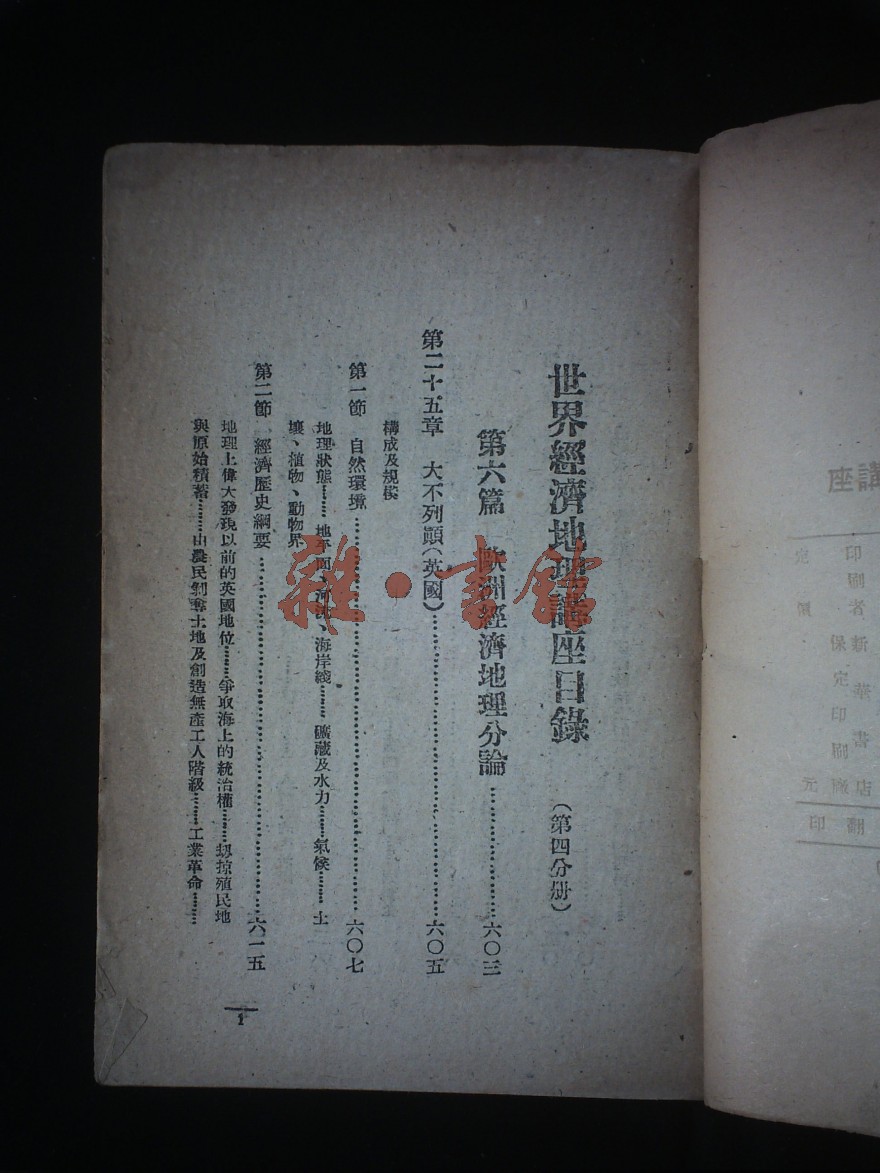 世界經濟地理講座目錄 (第四分册)
第六篇 歐洲經濟地理分論…………六〇三
第二十五章 大不列顛(英國)…………六〇五
構成及規模
第一節 自然環境…………六〇七
地理狀態……地平面、河流、海岸綫……礦藏及水力……氣候……土
壤、植物、動物界
第二節 經濟歷史綱要…………六一五
地理上偉大發現以前的英國地位……爭取海上的統治權……刼掠殖民地
與原始積蓄……由農民剝奪土地及創造無產工人階級……工業革命……
1
雜·書館
講座
印刷者
新華書店
保定印刷廠
定價
元
翻印